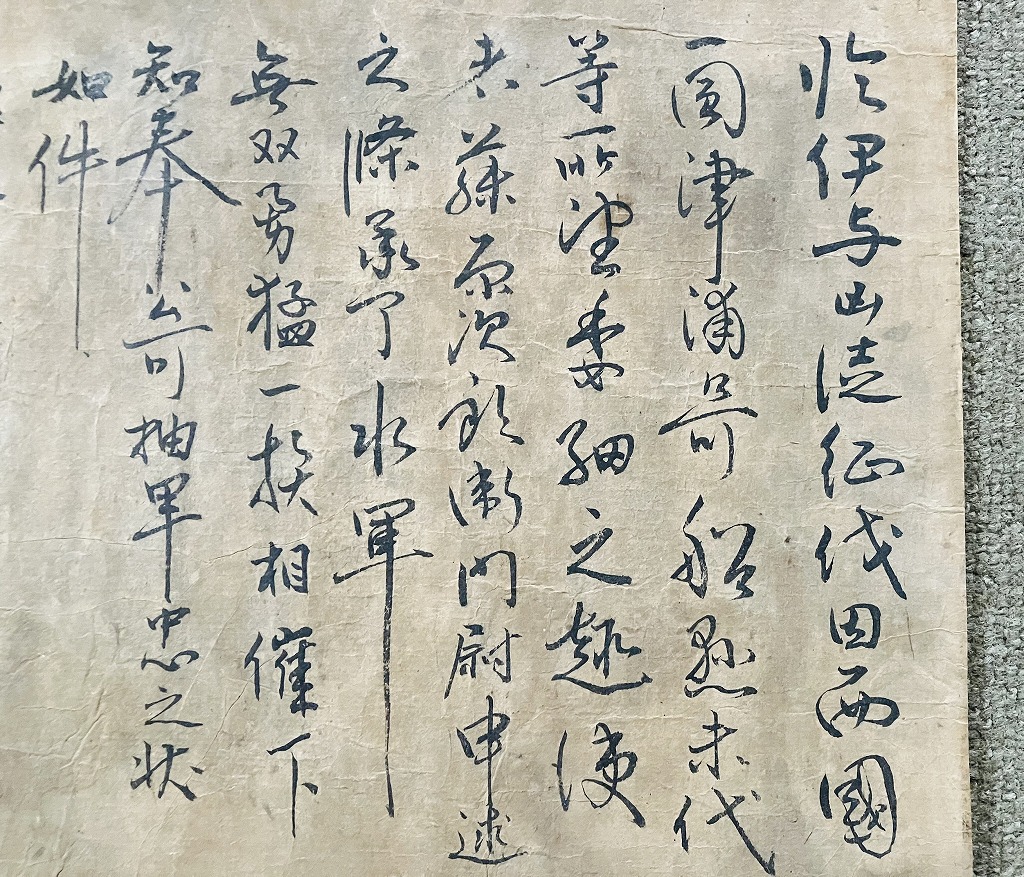 伊与凶徒征伐因西國
一圓津浦可船點未代
等一所望委細之趣使
者藤原次郎衛門尉申述
之條承了水軍
無双勇猛一揆相催下
知奉公可抽軍忠之状
如件